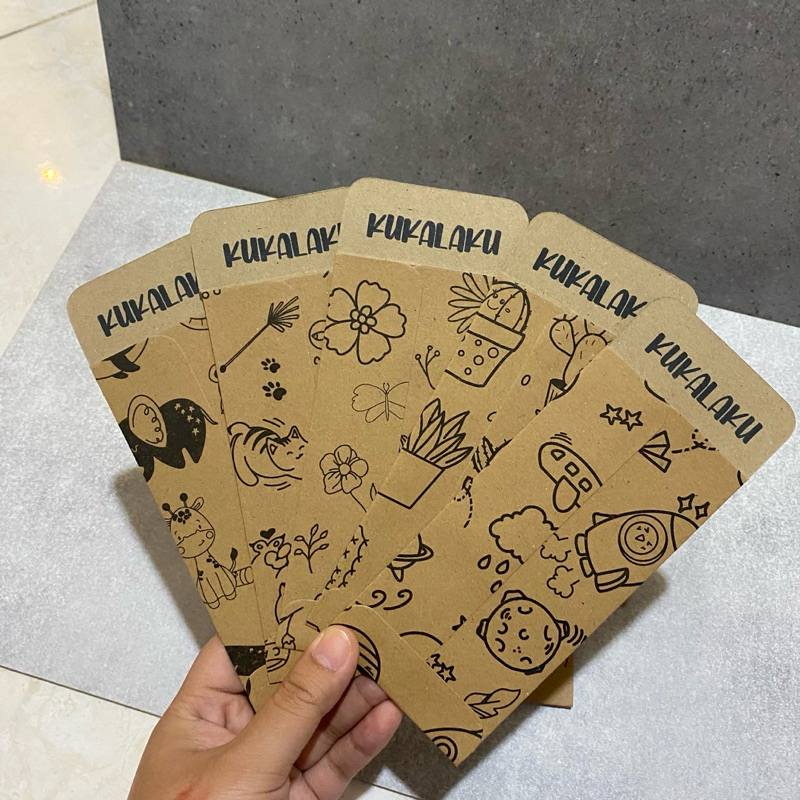 KUKALAKU
KUKALAKU
KUKALAKU
KUKALAKU
KUKALAKU